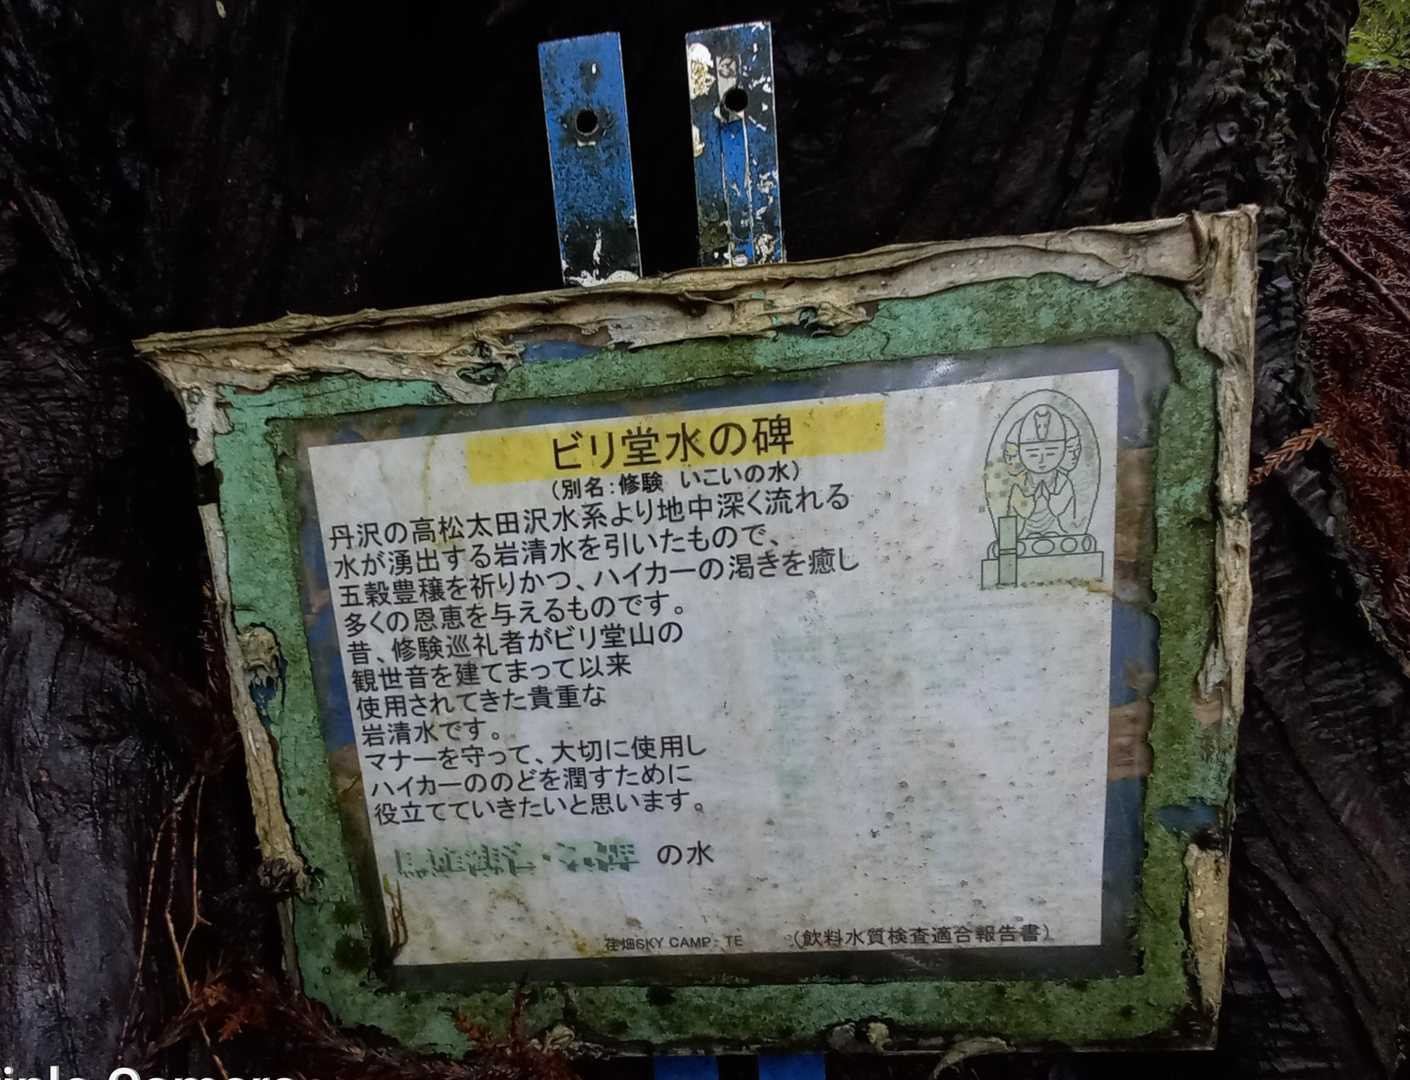 ビリ堂水の碑
（別名：修験 いこいの水）
丹沢の高松太田沢水系より地中深く流れる
水が湧出する岩清水を引いたもので、
五穀豊穣を祈りかつ、ハイカーの渇きを癒し
多くの恩恵を与えるものです。
昔、修験巡礼者がビリ堂山の
観世音を建てまって以来
使用されてきた貴重な
岩清水です。
マナーを守って、大切に使用し
ハイカーののどを潤すために
役立てていきたいと思います。
の水
SKY CAMP
（飲料水質検査適合報告書）